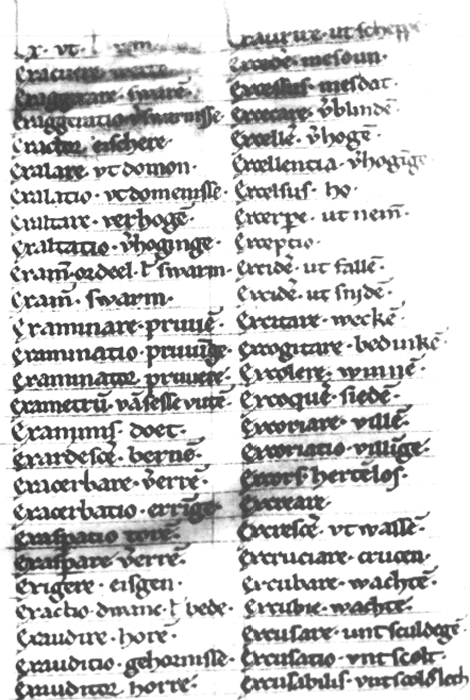 Ex · vt ·
Exacuere · wette
Exaggerare · swarē
Exaggeratio · v̄swarnisse
Exactor · eischere ·
Exalare · vt domon ·
Exalatio · vt domenisse ·
Exaltare · verhogē ·
Exaltatio · v̄hoginge ·
Exam̄ · ordeel · l̄ swarm ·
Exam̄ · swarm ·
Examinare · pruuē ·
Examinatio · pruuīge
Examinator · pruuere ·
Exametrū · vā sesse vutē ·
Exanimis · doet ·
Exardescē · bernē ·
Exacerbare · v̄errē ·
Exacerbatio · errīge
Exaspatio · torē ·
Exaspare · v̄errē ·
Exigere · eisgen ·
Exactio · dwinc · l̄ bede ·
Exaudire · horē ·
Exauditio · gehornisse ·
Exauditor · horre ·
Exaurire · ut scheppē
Excidē · mesoun ·
Excessus · mesdat ·
Excecare · v̄blindē
Excellē · v̄hogē ·
Excellencia · v̄hogīge
Excelsus · ho ·
Excerpe · ut nem̄ ·
Exceptio ·
Excidē · ut fallē ·
Excidē · ut snidē ·
Excitare · weckē ·
Excogitare · bedinkē ·
Excolere · winnē ·
Excoquē · siedē ·
Excoriare · villē ·
Excoriatio · villīge ·
Excors · hertēlos ·
Excreare
Excrescē · vt wassē ·
Excruciare · crucen ·
Excubare · wachtē ·
Excubie · wachte ·
Excusare · unt sculdegē
Excusatio · vnt scolt ·
Excusabilis · vnt scoldlech